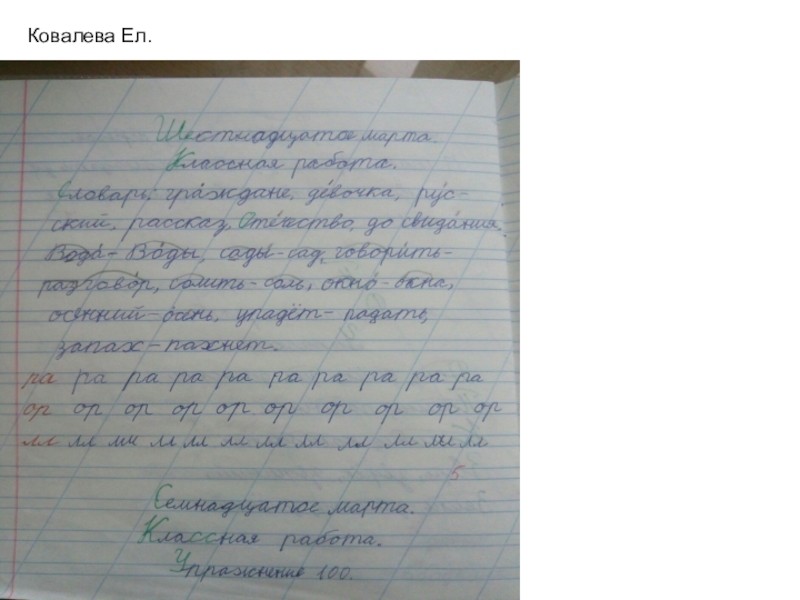 Ковалева Ел.
Шестнадцатое марта.
Классная работа.
Словарь: граждане, девочка, рус-
ский, рассказ, Отечество, до свидания.
Вода́ - Во́ды, сады́ - сад, говори́ть -
разгово́р, солить - соль, окно́ - окна,
осенний - осень, упадёт - падать,
запах - пахнет.
ра ра ра ра ра ра ра ра ра ра
ор ор ор ор ор ор ор ор ор ор
лл лл лл лл лл лл лл лл лл лл лл лл
5
Семнадцатое марта.
Классная работа.
Упражнение 100.